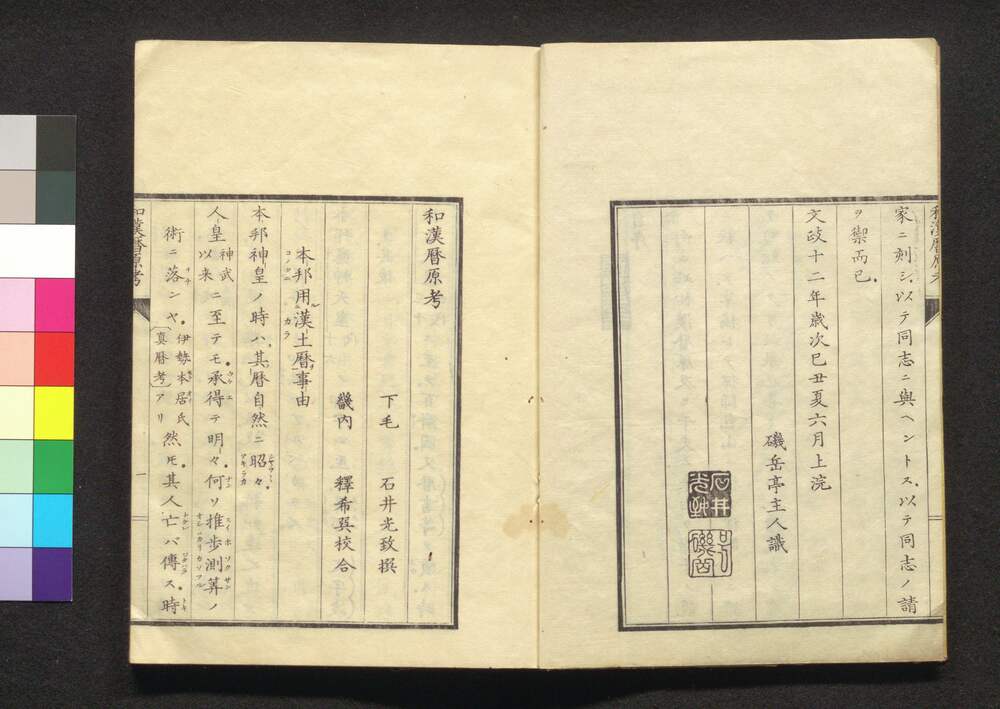 家ニ刻シ以テ同志ニ與ヘントス以テ同志ノ請
ヲ禦而已
文政十二年歳次己丑夏六月上浣
磯岳亭主人識
石井
光致
和漢暦原考
下毛 石井光致撰
畿内 釋希㒞校合
本邦用漢土暦事由
本邦神皇ノ時ハ其暦自然ニ昭々
人皇神武以来ニ至テモ承得テ明々何ソ推歩測筭ノ
術ニ落ンヤ伊勢本居氏真暦考アリ然𪜈其人亡バ傳ス時
和漢暦原考
一